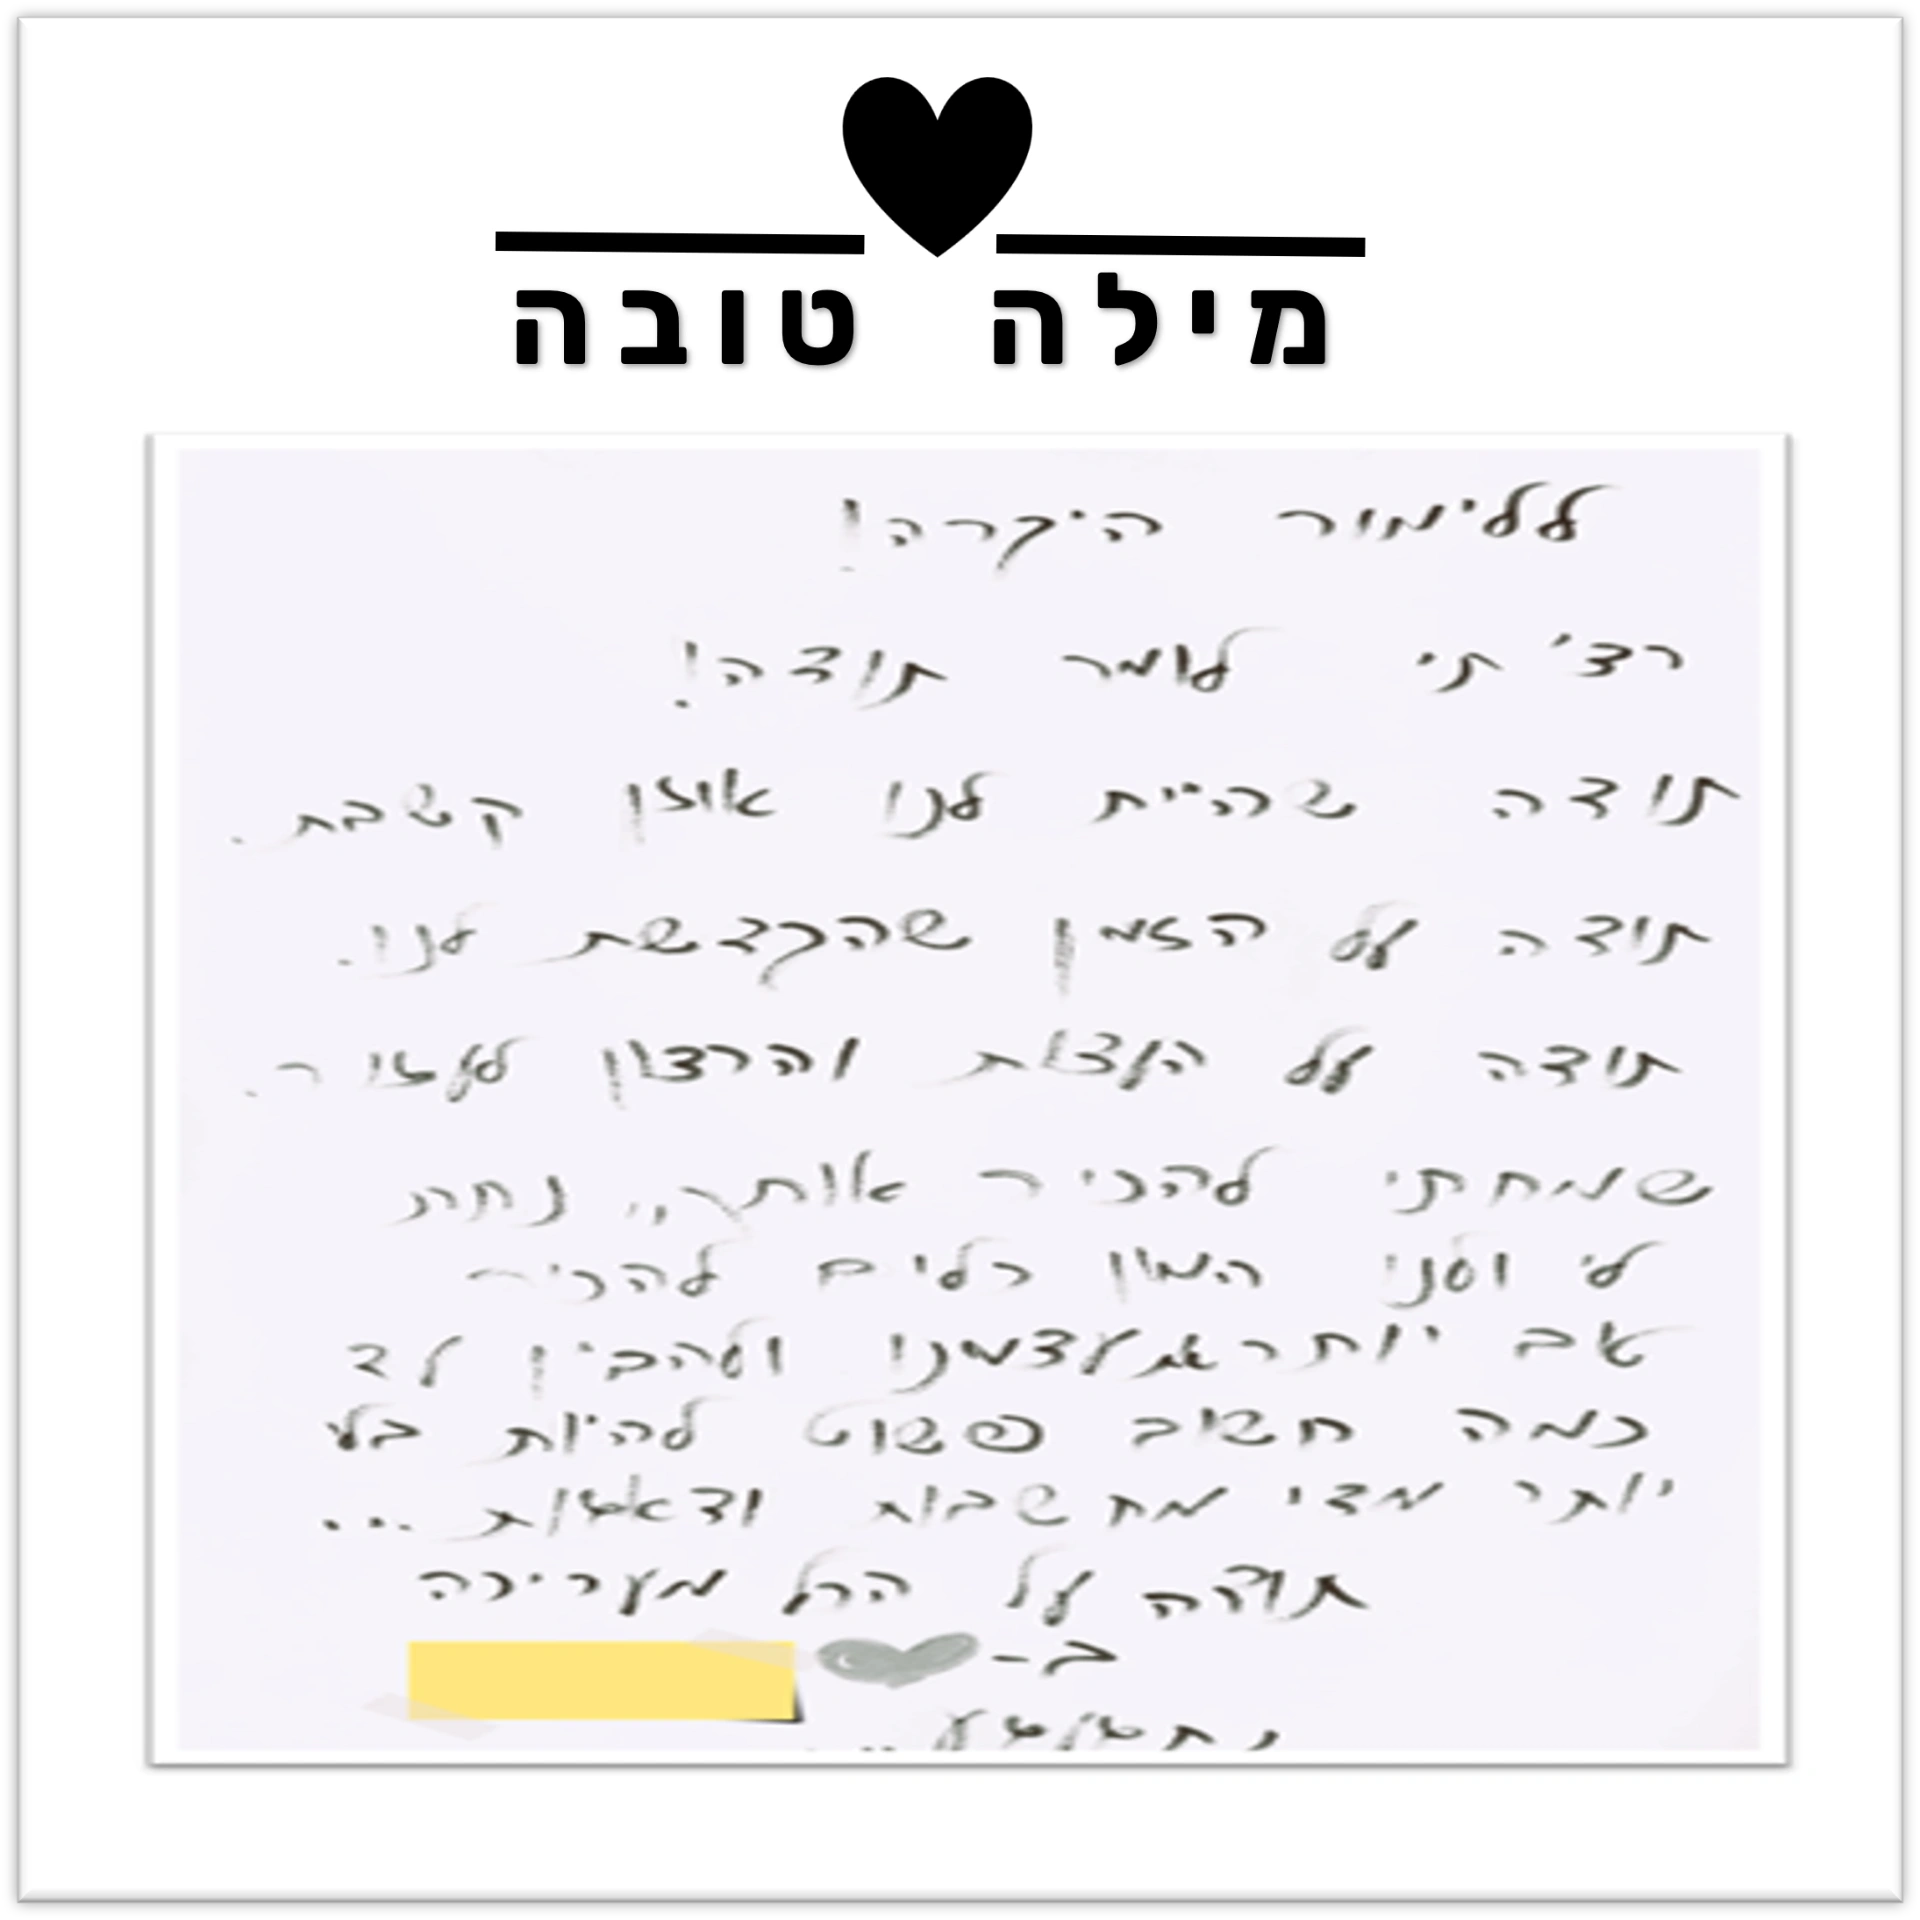 מילה טובה
ללימור היקרה!
רצ'תי לומר תודה!
תודה שהיית לנו אוזן קשבת.
תודה על הזמן שהקדשת לנו.
תודה על העצות והרצון לעזור.
שמחתי להכיר אותך,, נתת
לי ולנו המון כלים להכיר
טוב יותר את עצמנו ולהבין עד
כמה חשוב פשוט להיות בלי
יותר מדי מחשבות ודאגות...
תודה על הכל מעריכה
ב-